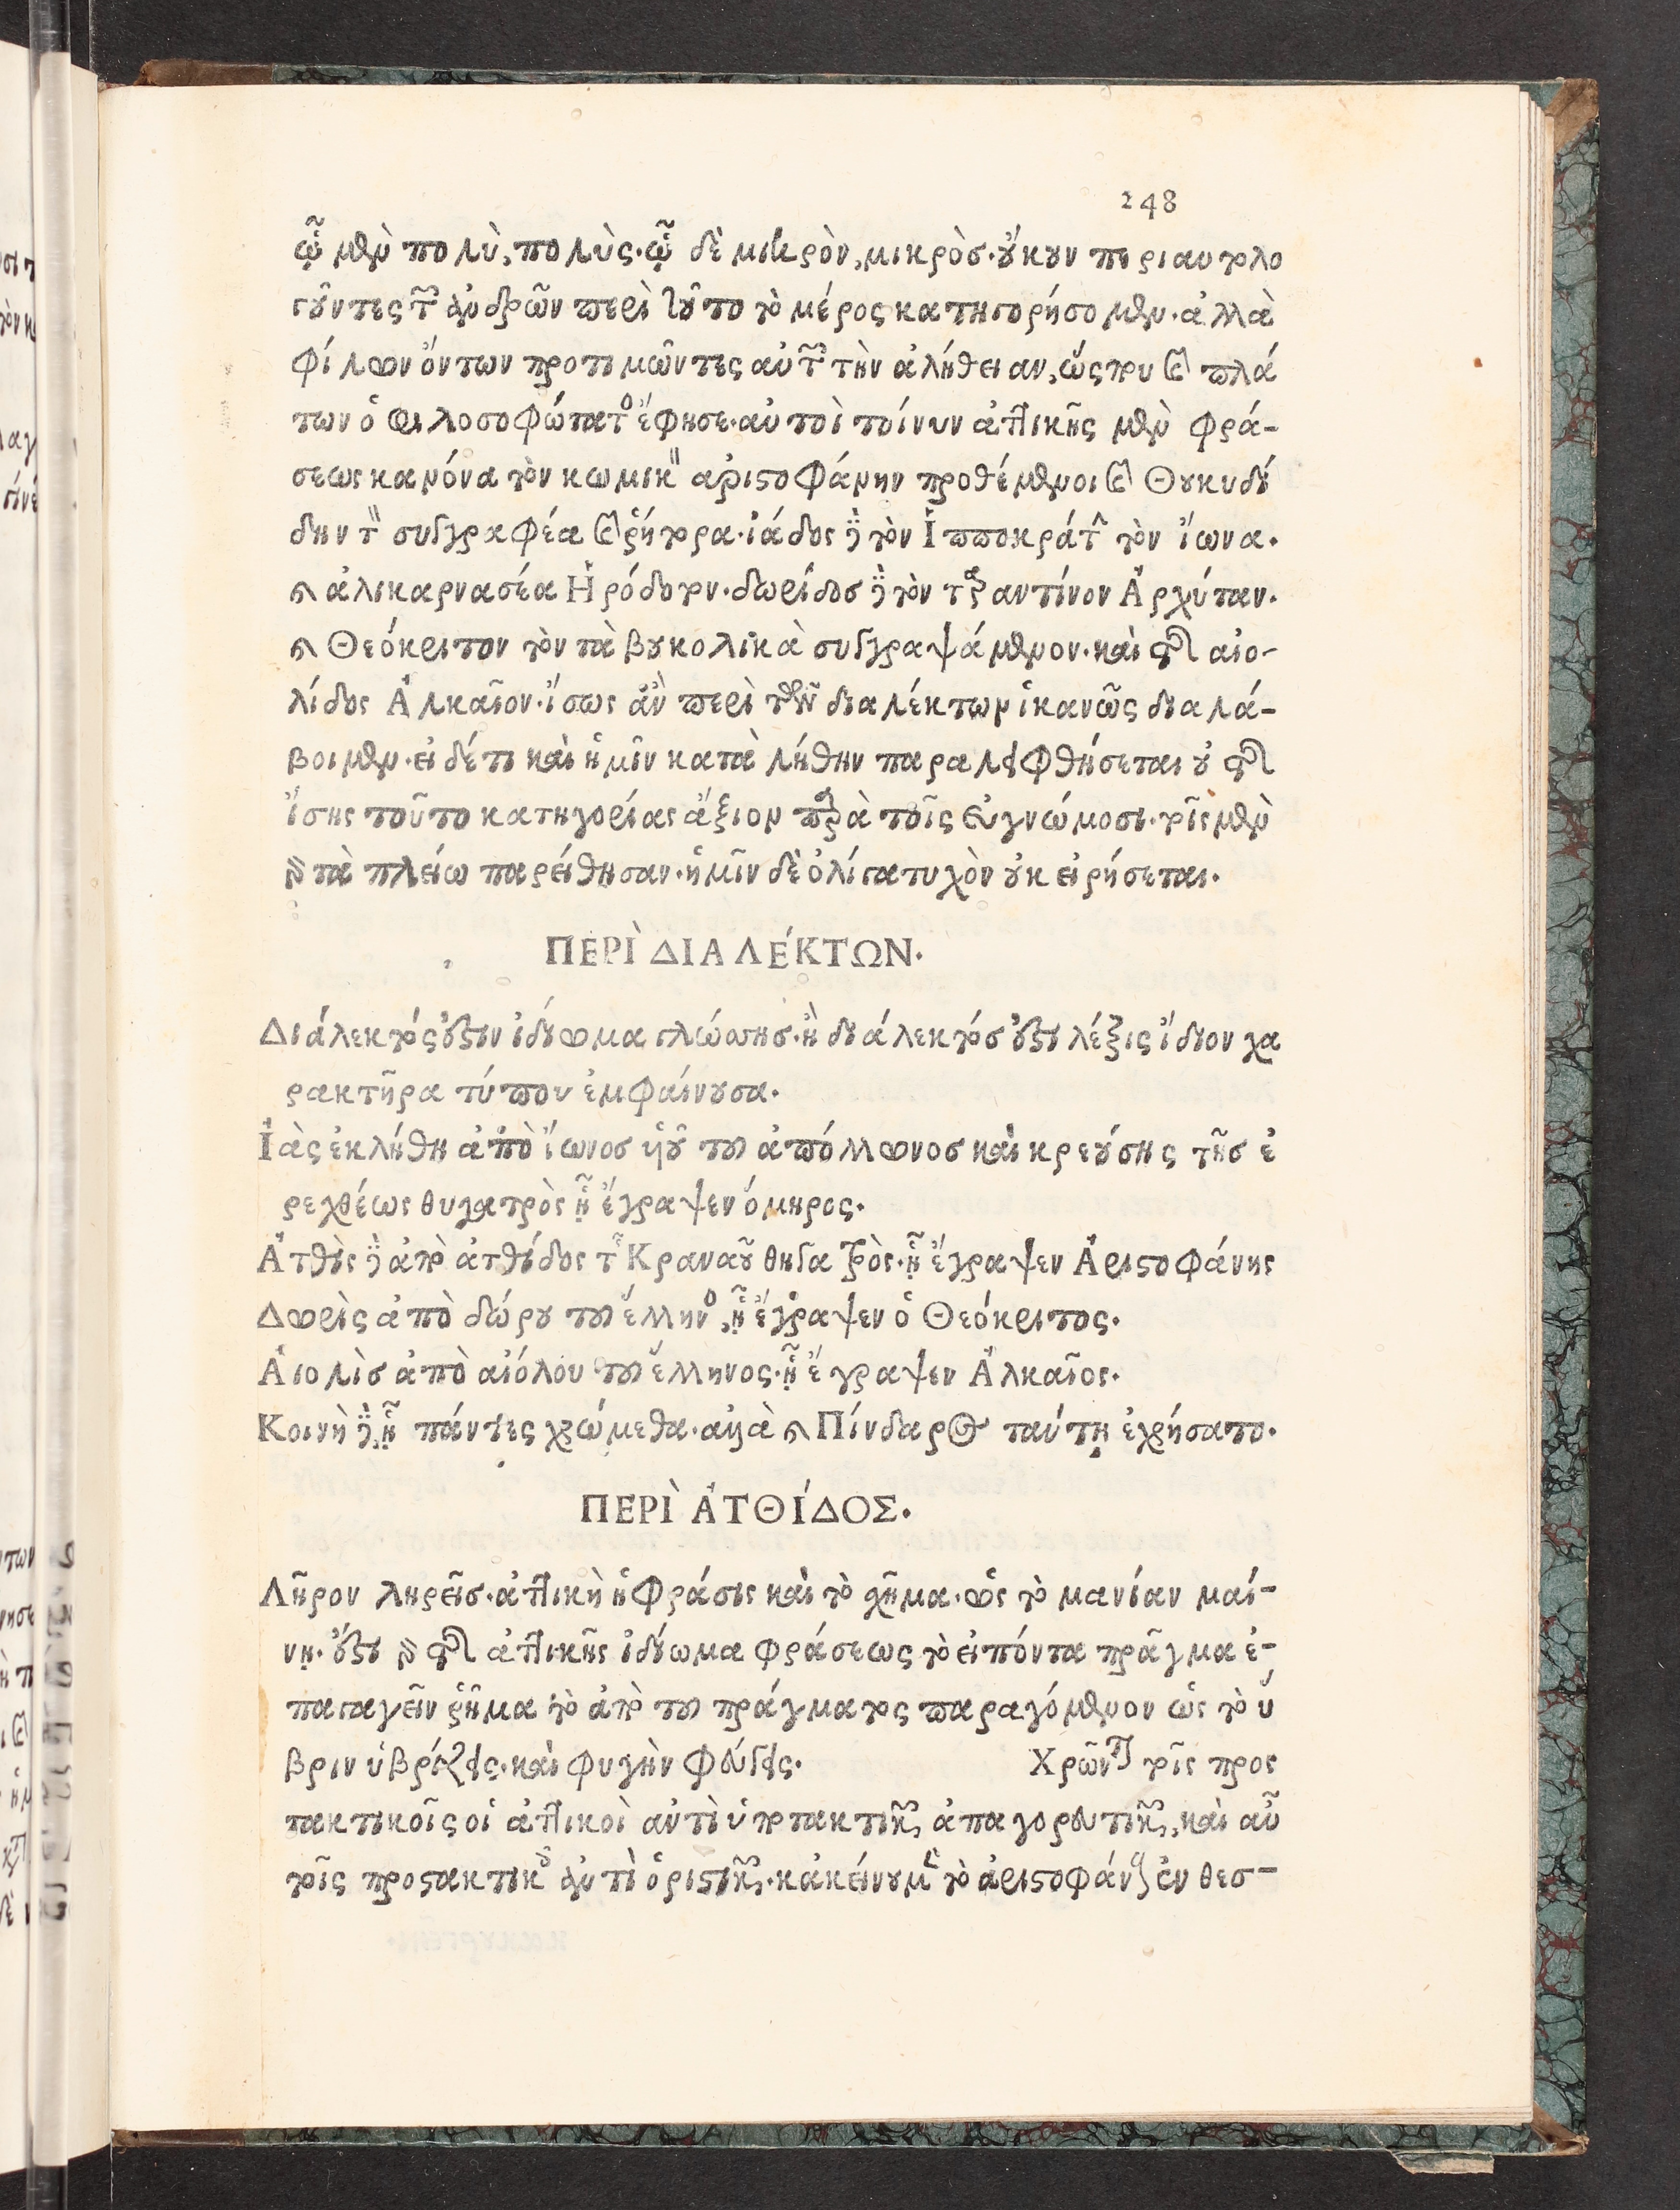 248
ᾧ μὲν πολὺ, πολὺς. ᾧ δὲ μικρὸν, μικρὸσ. οὔκουν περιαυτολο
γοῦντες τῶν ἀνδρῶν περὶ τοῦτο τὸ μέρος κατηγορήσομεν. ἀλλὰ
φίλων ὄντων προτιμῶντες αὐτῶν τὴν ἀλήθειαν, ὥς που καὶ πλά
των ὁ φιλοσοφώτατος ἔφησε. αὐτοὶ τοίνυν ἀττικῆς μὲν φρά-
σεως κανόνα τὸν κωμικὸν ἀριστοφάνην προθέμενοι καὶ Θουκυδί
δην τὸν συγγραφέα καὶ ῥήτορα. ἰάδος δὲ τὸν Ἱπποκράτην τὸν ἴωνα.
καὶ ἁλικαρνασέα Ἡρόδοτον. δωρίδοσ δὲ τὸν ταραντίνον Ἀρχύταν.
καὶ Θεόκριτον τὸν τὰ βουκολικὰ συγγραψάμενον. καὶ τῆς αἰο-
λίδος Ἀλκαῖον. ἴσως ἂν περὶ τῶν διαλέκτων ἱκανῶς διαλά-
βοιμεν. εἰ δέ τι καὶ ἡμῖν κατὰ λήθην παραλειφθήσεται οὐ τῆς
ἴσης τοῦτο κατηγορίας ἄξιον παρὰ τοῖς εὐγνώμοσι. τοῖς μὲν
γὰρ τὰ πλείω παρείθησαν. ἡμῖν δὲ ὀλίγα τυχὸν οὐκ εἰρήσεται.
ΠΕΡῚ ΔΙΑΛΈΚΤΩΝ.
Διάλεκτός ἐστιν ἰδίωμα γλώσσησ. ἢ διάλεκτόσ ἐστι λέξις ἴδιον χα
ρακτῆρα τύπου ἐμφαίνουσα.
Ἰὰς ἐκλήθη ἀπὸ ἴωνοσ υἱοῦ τοῦ ἀπόλλωνοσ καὶ κρεούσης τῆσ ἐ
ρεχθέως θυγατρὸς ᾗ ἔγραψεν ὅμηρος.
Ἀτθὶς δὲ ἀπὸ ἀτθίδος τῆς Κραναοῦ θυγατρὸς. ᾗ ἔγραψεν Ἀριστοφάνης
Δωρὶς ἀπὸ δώρου τοῦ ἕλληνος, ᾗ ἔγραψεν ὁ Θεόκριτος.
Αἰολὶσ ἀπὸ αἰόλου τοῦ ἕλληνος. ᾗ ἔγραψεν Ἀλκαῖος.
Κοινὴ δὲ, ᾗ πάντες χρώμεθα. ἀλλὰ καὶ Πίνδαρος ταύτῃ ἐχρήσατο.
ΠΕΡῚ ἈΤΘΊΔΟΣ.
Λῆρον ληρεῖσ. ἀττικὴ ἡ φράσις καὶ τὸ σχῆμα. ὡς τὸ μανίαν μαί-
νῃ. ἔστι γὰρ τῆς ἀττικῆς ἰδίωμα φράσεως τὸ εἰπόντα πρᾶγμα ἐ-
παγαγεῖν ῥῆμα τὸ ἀπὸ τοῦ πράγματος παραγόμενον ὡς τὸ ὕ
βριν ὑβρίζεις. καὶ φυγὴν φεύγεις. Χρῶνται τοῖς προς
τακτικοῖς οἱ ἀττικοὶ ἀντὶ ὑποτακτικῶν, ἀπαγορευτικῶν, καὶ αὖ
τοῖς προστακτικοῖς ἀντὶ ὁριστικῶν. κἀκεῖνο μὲν τὸ ἀριστοφάνους ἐν θεσ-